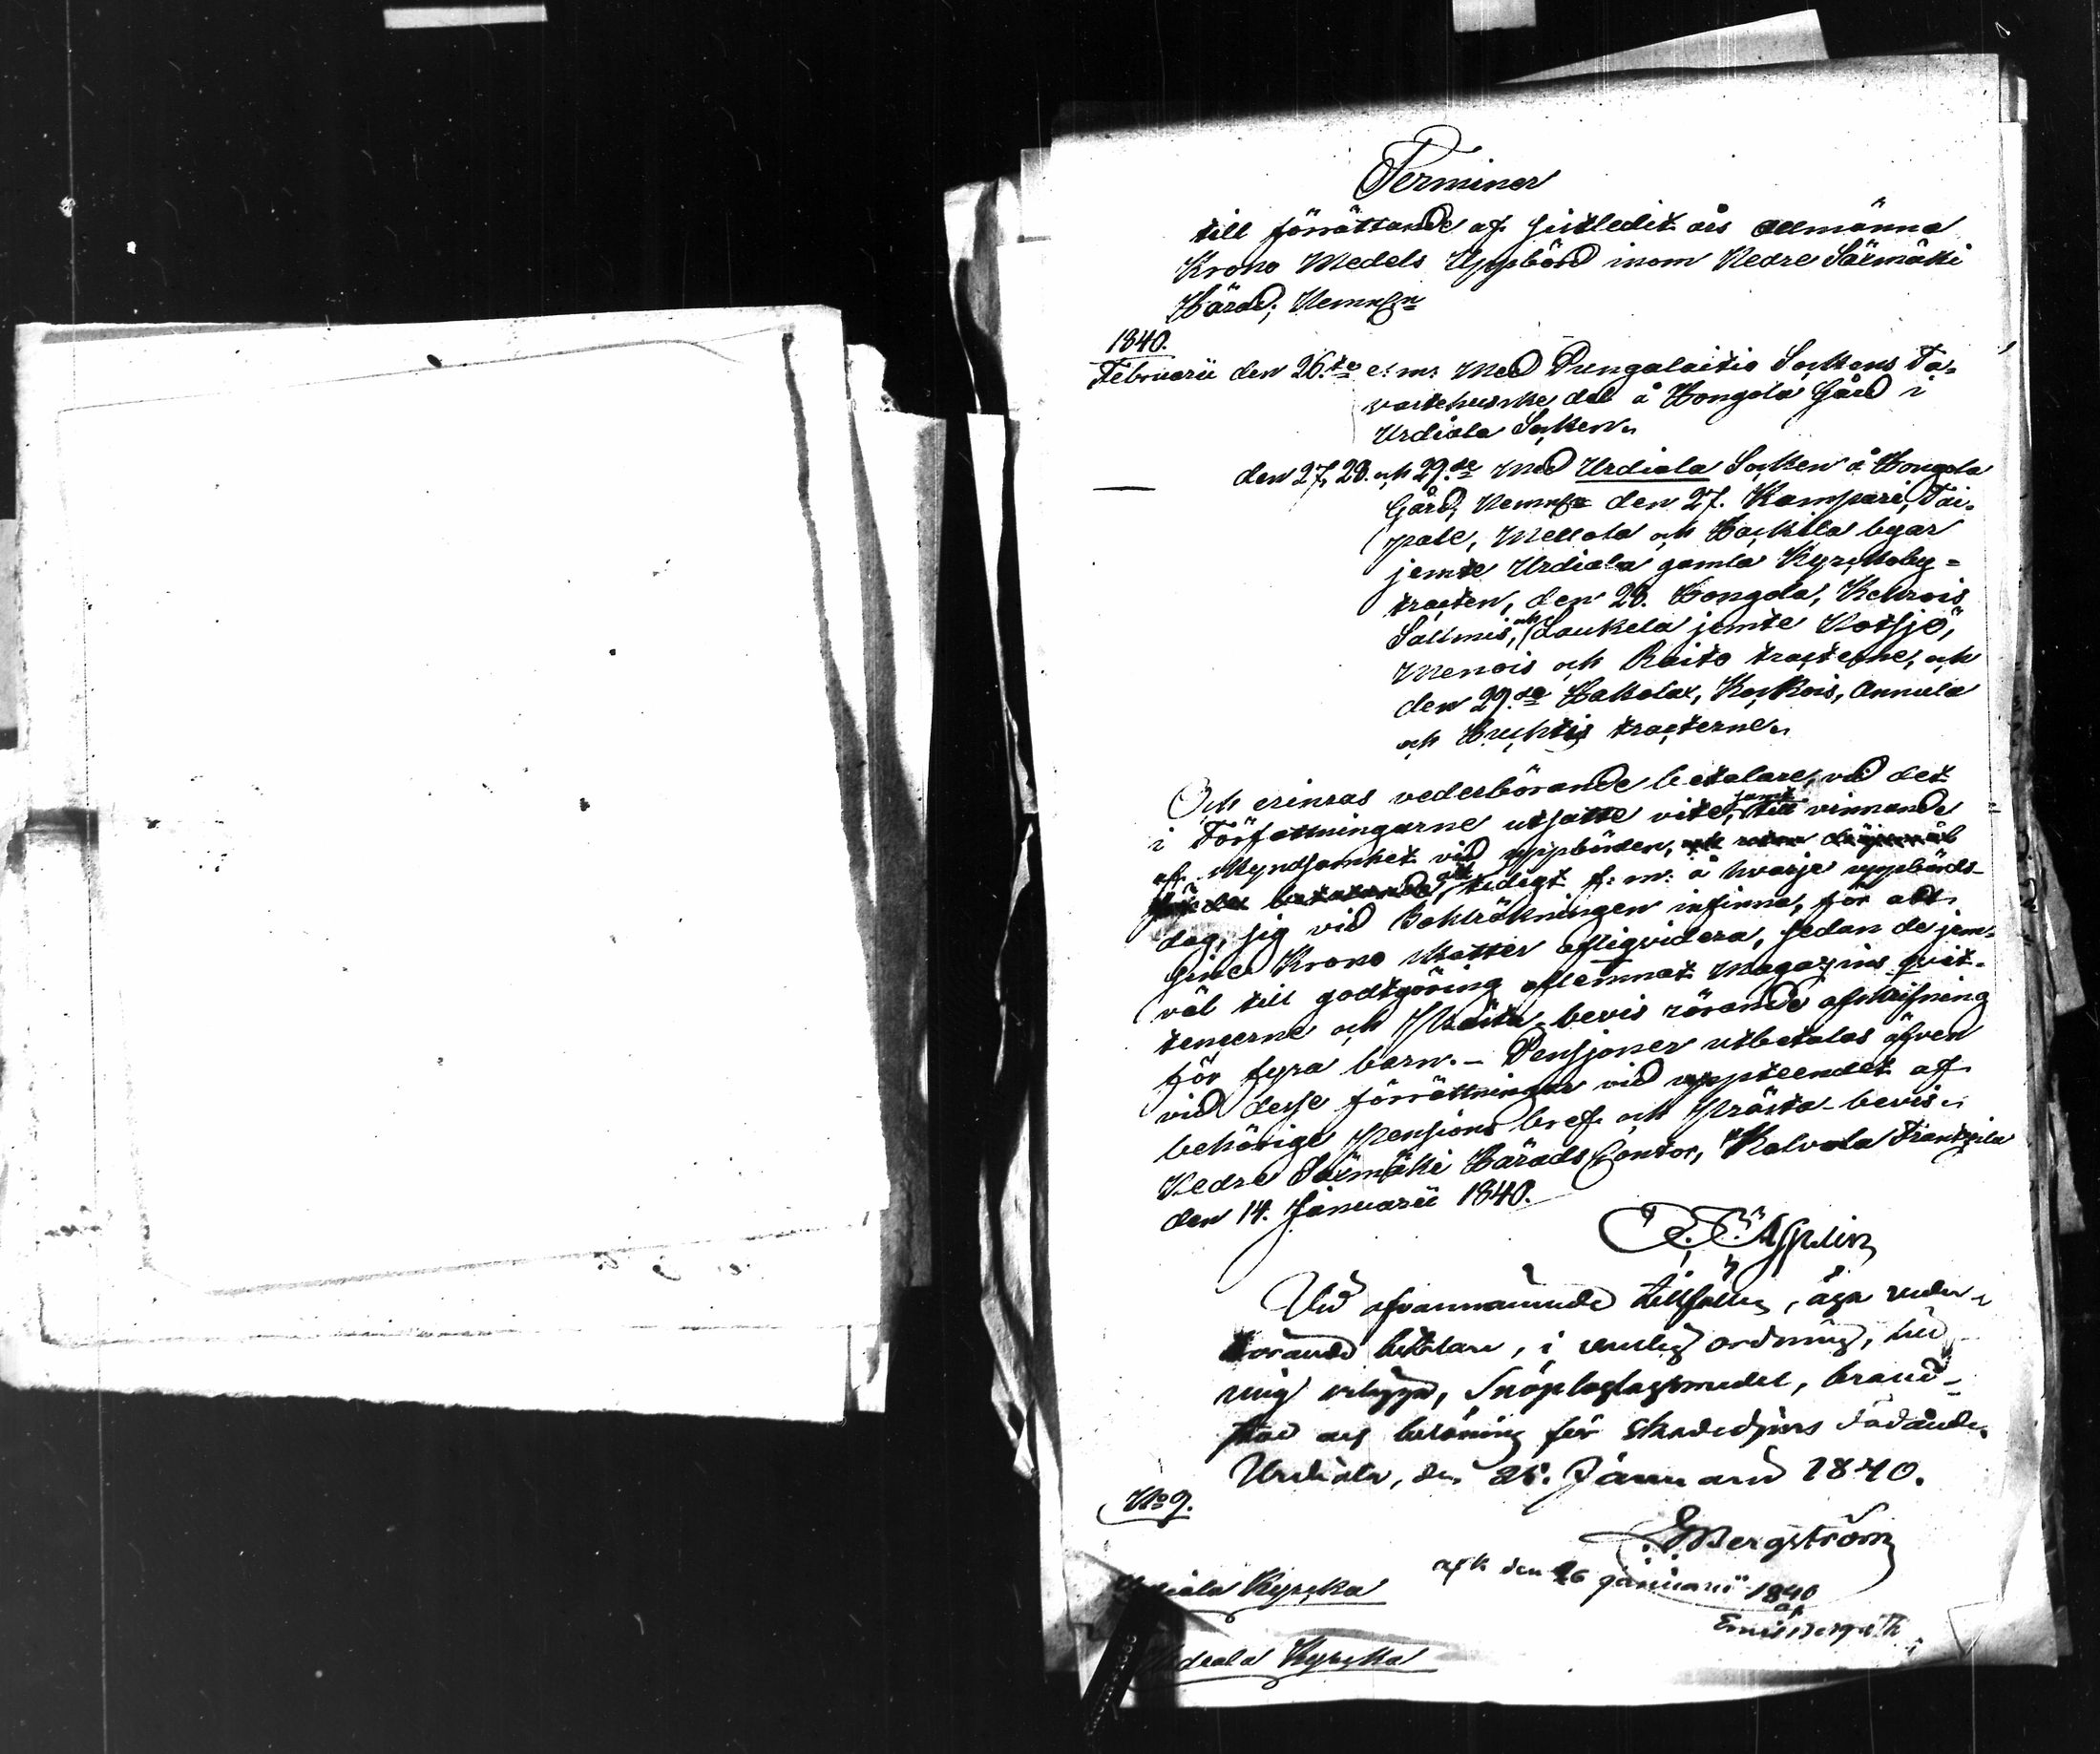 Terminer
till förrättande af sistledit års allmänna
Krono Medels Uppbörd inom Nedre Säxmäki
Härad; Nemln
1840.
Februarii den 26.te e: m: Med Pungalaitio Sockens Ta-
vastehuske del å Hongola Gård i
Urdiala Socken.
— den 27, 28. och 29.de Med Urdiala Socken å Hongola
Gård, Nemln den 27. Kampari, Tai-
pale, Mellola och Hackila byar
jemte Urdiala gamla Kyrckoby-
tracten, den 28. Hongola, Kehrois
Sallmis, och Laukela jemte Notsjö,
Menois och Raito tracterne, och
den 29.de Hakolax, Koskois, Annula
och Huchtis tracterne.
Och erinras vederbörande betalare, vid det
i Författningarne utsatte vite, samt till vinnande
af skyndsamhet vid uppbörden,
att tidigt f: m: å hvarje uppbörds-
dag, sig vid Bokträkningen infinna, för att
sine Krono skatter afliqvidera, sedan de jem-
väl till godtgöring aflemnat Magazins qvit-
tencerne och Prästa-bevis rörande afskrifning
för fyra barn. – Pensioner utbetalas äfven
vid desse förrättningar vid uppteendet af
behörige Pensions bref och Prästa-bevis.
Nedre Säxmäki Härads Contor, Kalvola Frantzila
den 14. Januarii 1840.
Asplin
Vid ofvannämnde tillfälle, äga veder-
börande betalare, i vanlig ordning, till
mig erlägga, Snöploglagsmedel, brand-
stod och belöning för skadedjurs dödande.
Urdiala, den 25. Januarii 1840.
No 9.
EBergström
Urdiala Kyrcka
afk den 26 januarii 1840
af
Urdiala Kyrcka